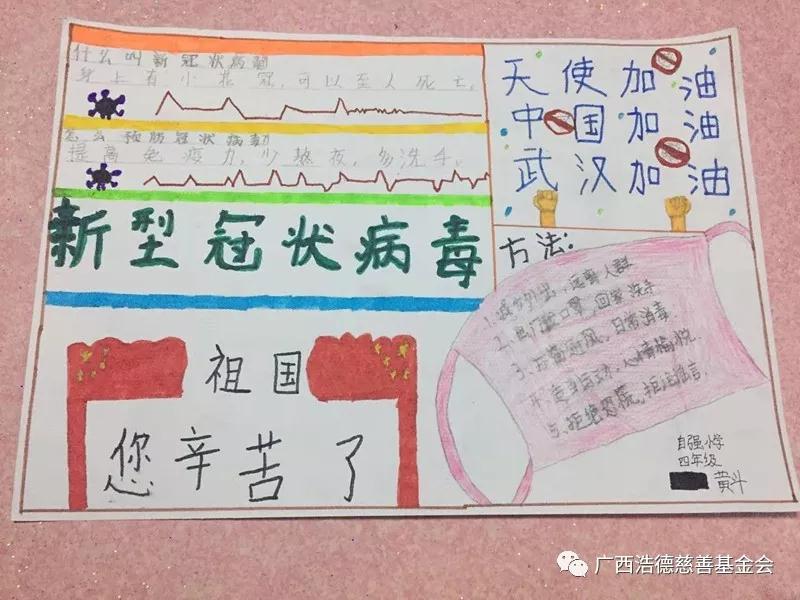 什么叫新冠状病毒
身上有小花冠，可以至人死亡。
怎么预防冠状病毒
提高免疫力，少熬夜，勿洗手。
新型冠状病毒
祖国
您辛苦了
天使加油
中国加油
武汉加油
方法：
1、减少外出，远离人群
2、出门戴口罩，回家洗手
3、开窗通风，日常消毒
4、适当运动，心情愉悦
5、拒绝恐慌，拒绝谣言.
自强小学
四年级
黄斗
广西浩德慈善基金会